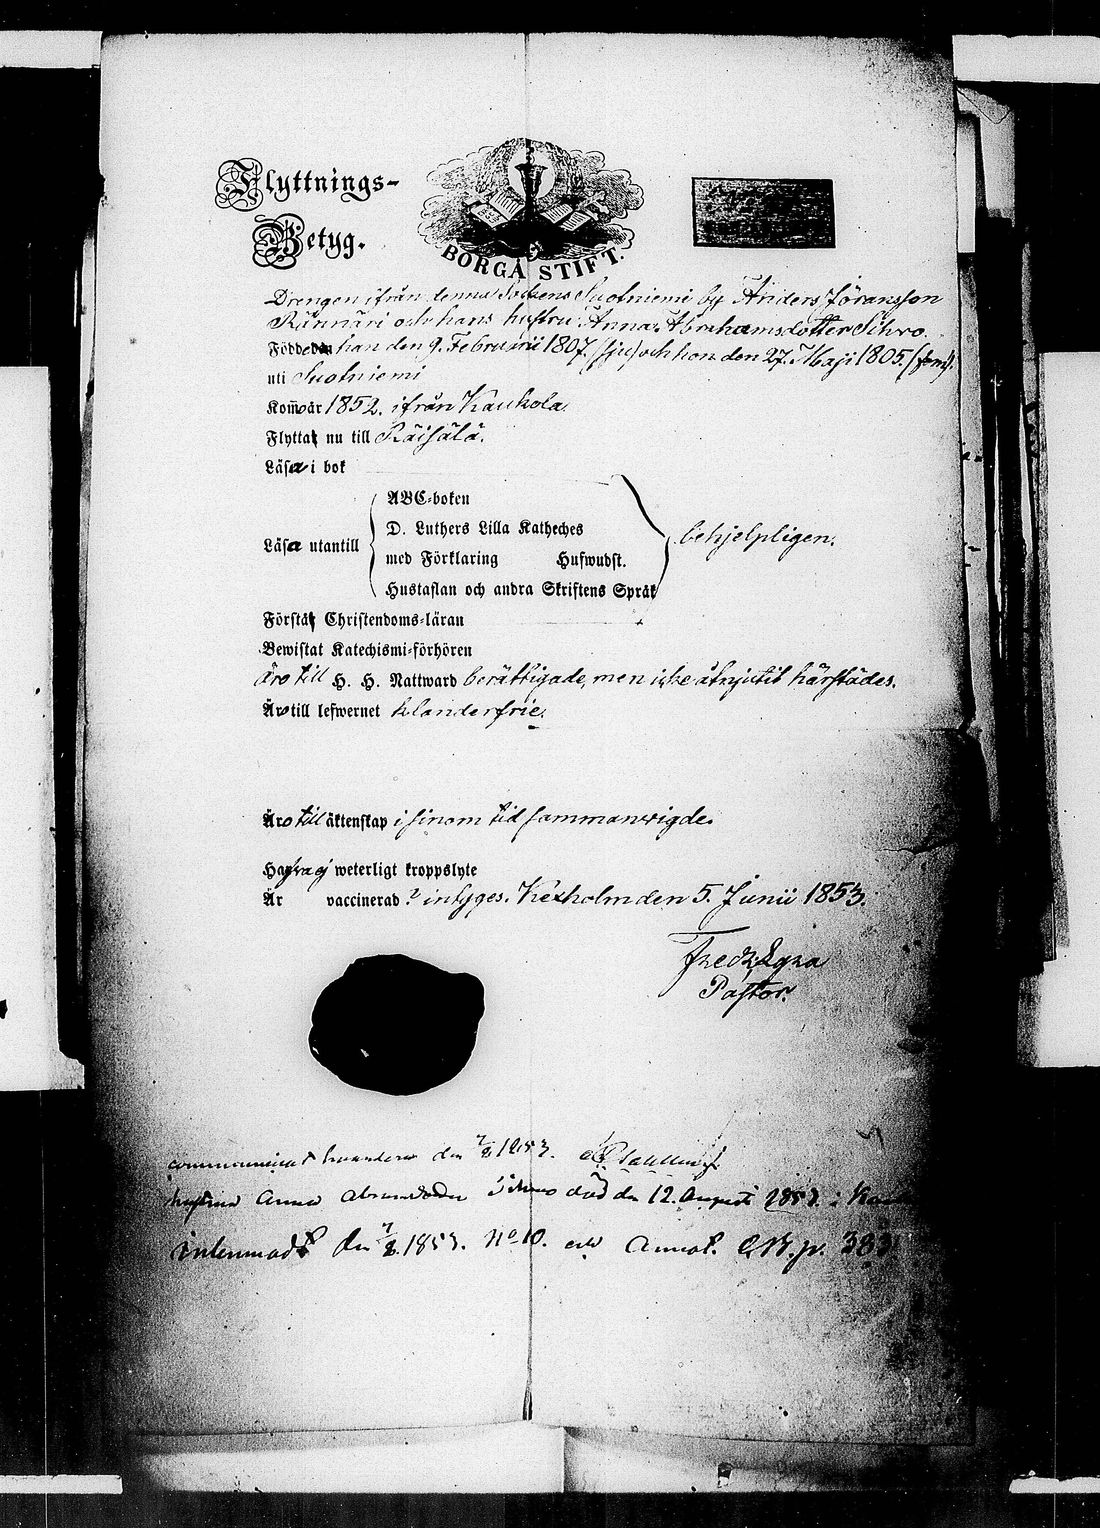 Flyttnings-
Betyg.
BORGÅ STIFT.
Drengen ifrån denna Sockens Suotniemi by Anders Jöransson
Rännäri och hans hustru Anna Abrahamsdotter Sihvo.
Födde han den 9. Februarii 1807. (sju) och hon den 27. Maji 1805. (fem).
uti Suotniemi
Kom̄o år 1852. ifrån Kaukola.
Flytta nu till Räisälä.
Läsa i bok
ABC-boken
D. Luthers Lilla Katheches
Läsa utantill
med Förklaring Hufwudst.
behjelpligen.
Hustaflan och andra Skriftens Språk
Förstå Christendoms-läran
Bewistat Katechismi-förhören
Äro till H. H. Nattward berättigade, men icke åtnjutit härstädes.
Äro till lefwernet klanderfrie.
Äro till äktenskap i sinom tid sammanvigde.
Hafva ej weterligt kroppslyte
Är vaccinerad ? intyges. Kexholm den 5. Junii 1853.
Fredr
Pastor.
den 7/8 1853.
hustrun Anna död den 12. Augusti 1853. i
den 7/8 1853. No 10. Annot. p. 383